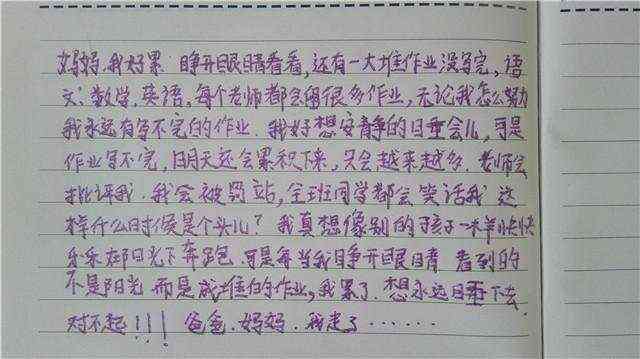 妈妈.我好累 睁开眼睛看看,还有一大堆作业没写完,语
文.数学.英语,每个老师都会留很多作业,无论我怎么努力
我永远有写不完的作业.我好想安静的睡会儿,可是
作业写不完,明天还会累积下来,只会越来越多.老师会
批评我.我会被罚站,全班同学都会笑话我 这
样什么时候是个头儿?我真想像别的孩子一样快快
乐乐在阳光下奔跑 可是每当我睁开眼睛 看到的
不是阳光 而是成堆的作业,我累了.想永远睡下去.
对不起!!! 爸爸.妈妈.我走了······